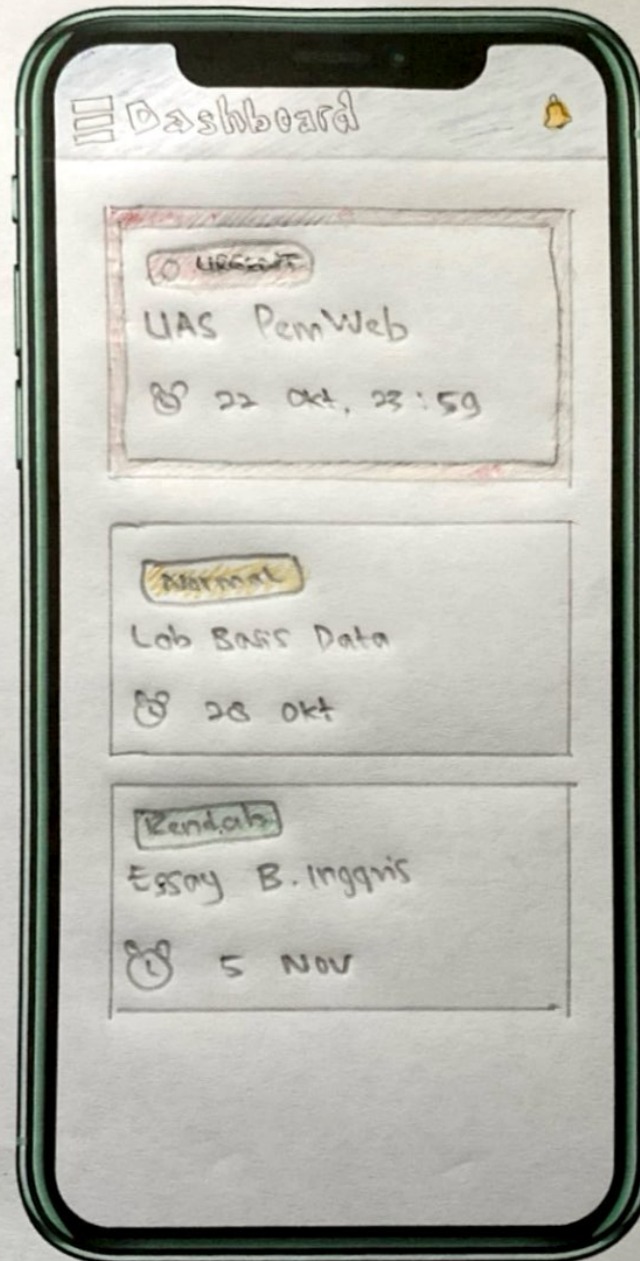 Dashboard
URGENT
UAS PemWeb
22 Okt, 23:59
Normal
Lab Basis Data
28 Okt
Rendah
Essay B. Inggris
5 NOV